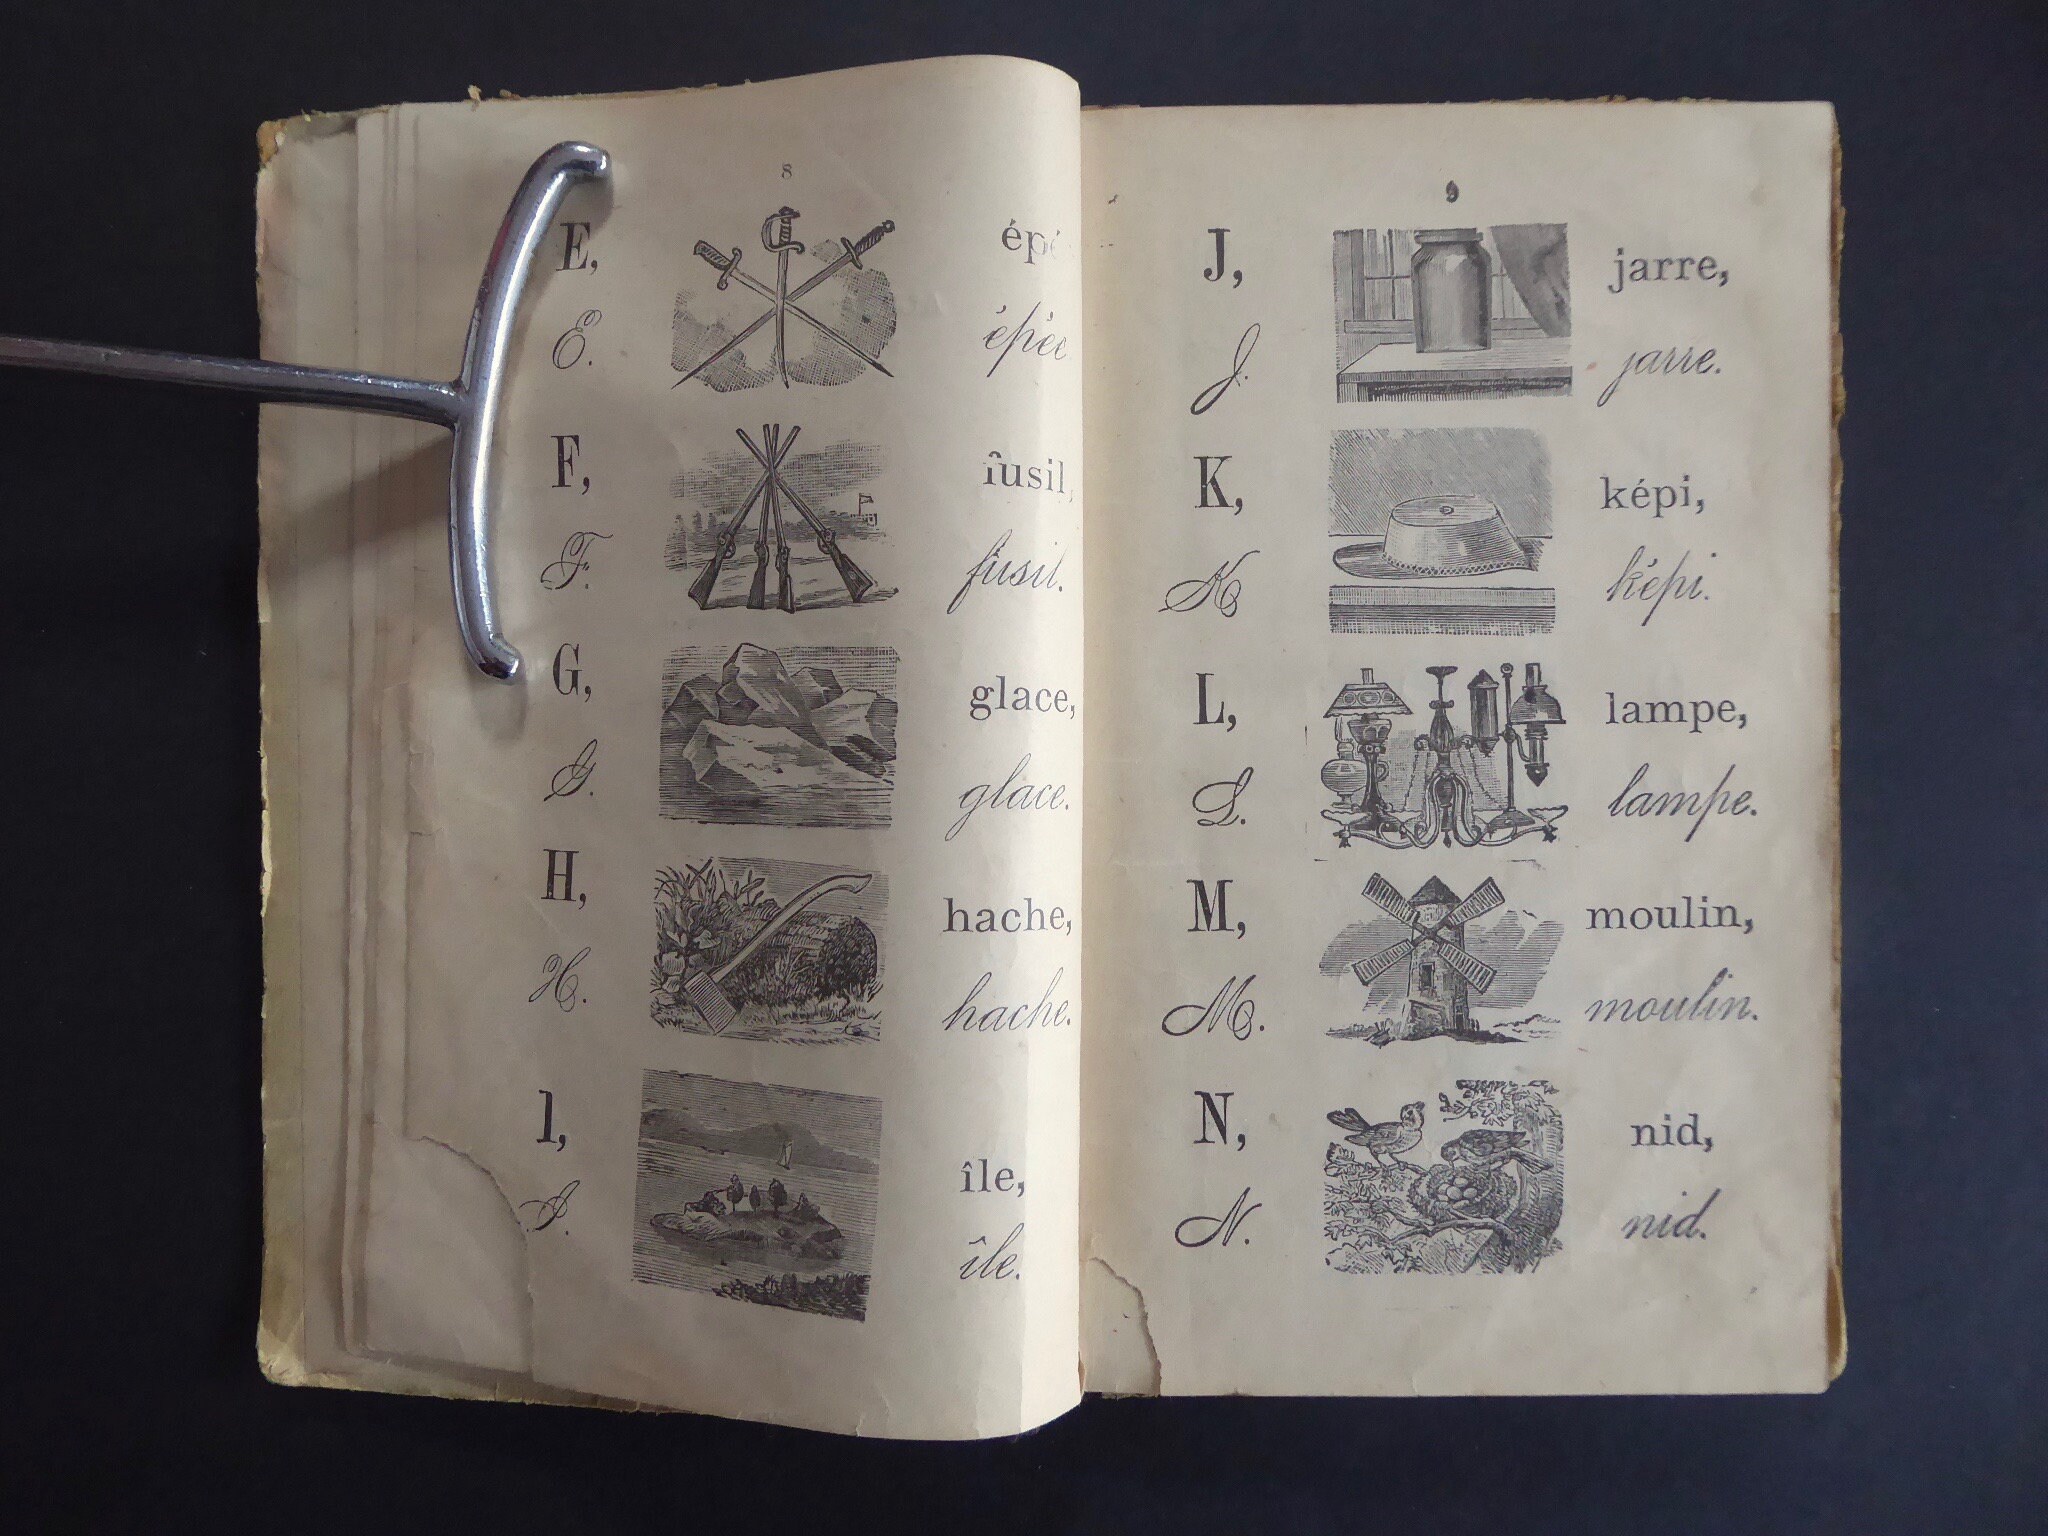 8
E,
épée
E.
épée
F,
fusil,
F.
fusil.
G,
glace,
G.
glace.
H,
hache,
H.
hache.
I,
île,
I.
île.
9
J,
jarre,
J.
jarre.
K,
képi,
K
képi.
L,
lampe,
L.
lampe.
M,
moulin,
M.
moulin.
N,
nid,
N.
nid.